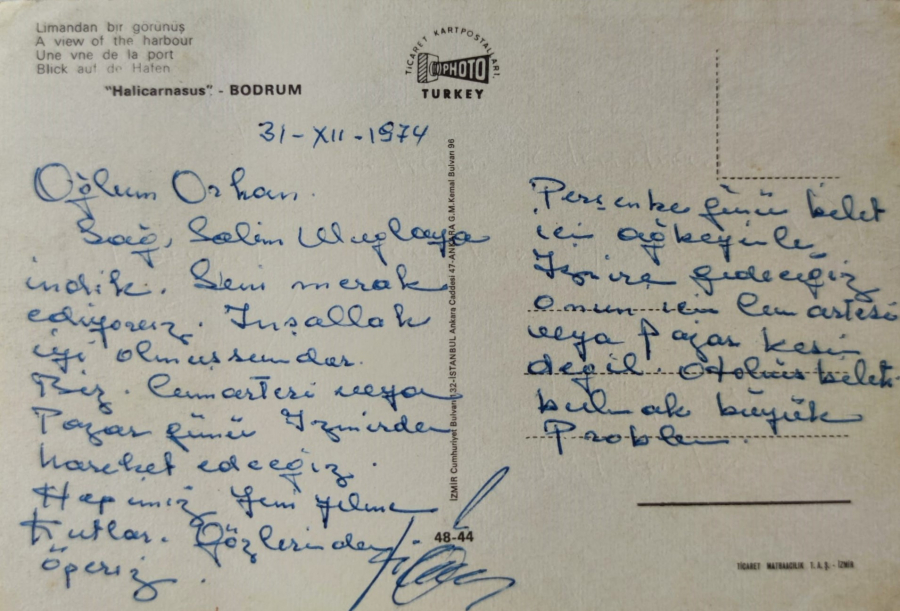 Limandan bir görünüş
A view of the harbour
Une vne de la port
Blick auf de Hafen
"Halicarnasus" - BODRUM
TİCARET KARTPOSTALLARI,
PHOTO
TURKEY
31-XII-1974
Oğlum Orhan.
Sağ, Salim Muğlaya
indik. Seni merak
ediyoruz. İnşallah
iyi olmuşsundur.
Biz. Cumartesi veya
Pazar günü İzmirden
hareket edeceğiz.
Hepimiz Yeni yılını
Kutlar. Gözlerinden
öperiz.
Perşenbe günü bilet
için
İzmire gideceğiz
onun için Cumartesi
veya Pazar kesin
değil. Otobüs bilet
bulmak büyük
Problem.
İZMİR Cumhuriyet Bulvarı 132-İSTANBUL Ankara Caddesi 47-ANKARA G.M.Kemal Bulvarı 96
48-44
TİCARET MATBAACILIK T.A.Ş.- İZMİR